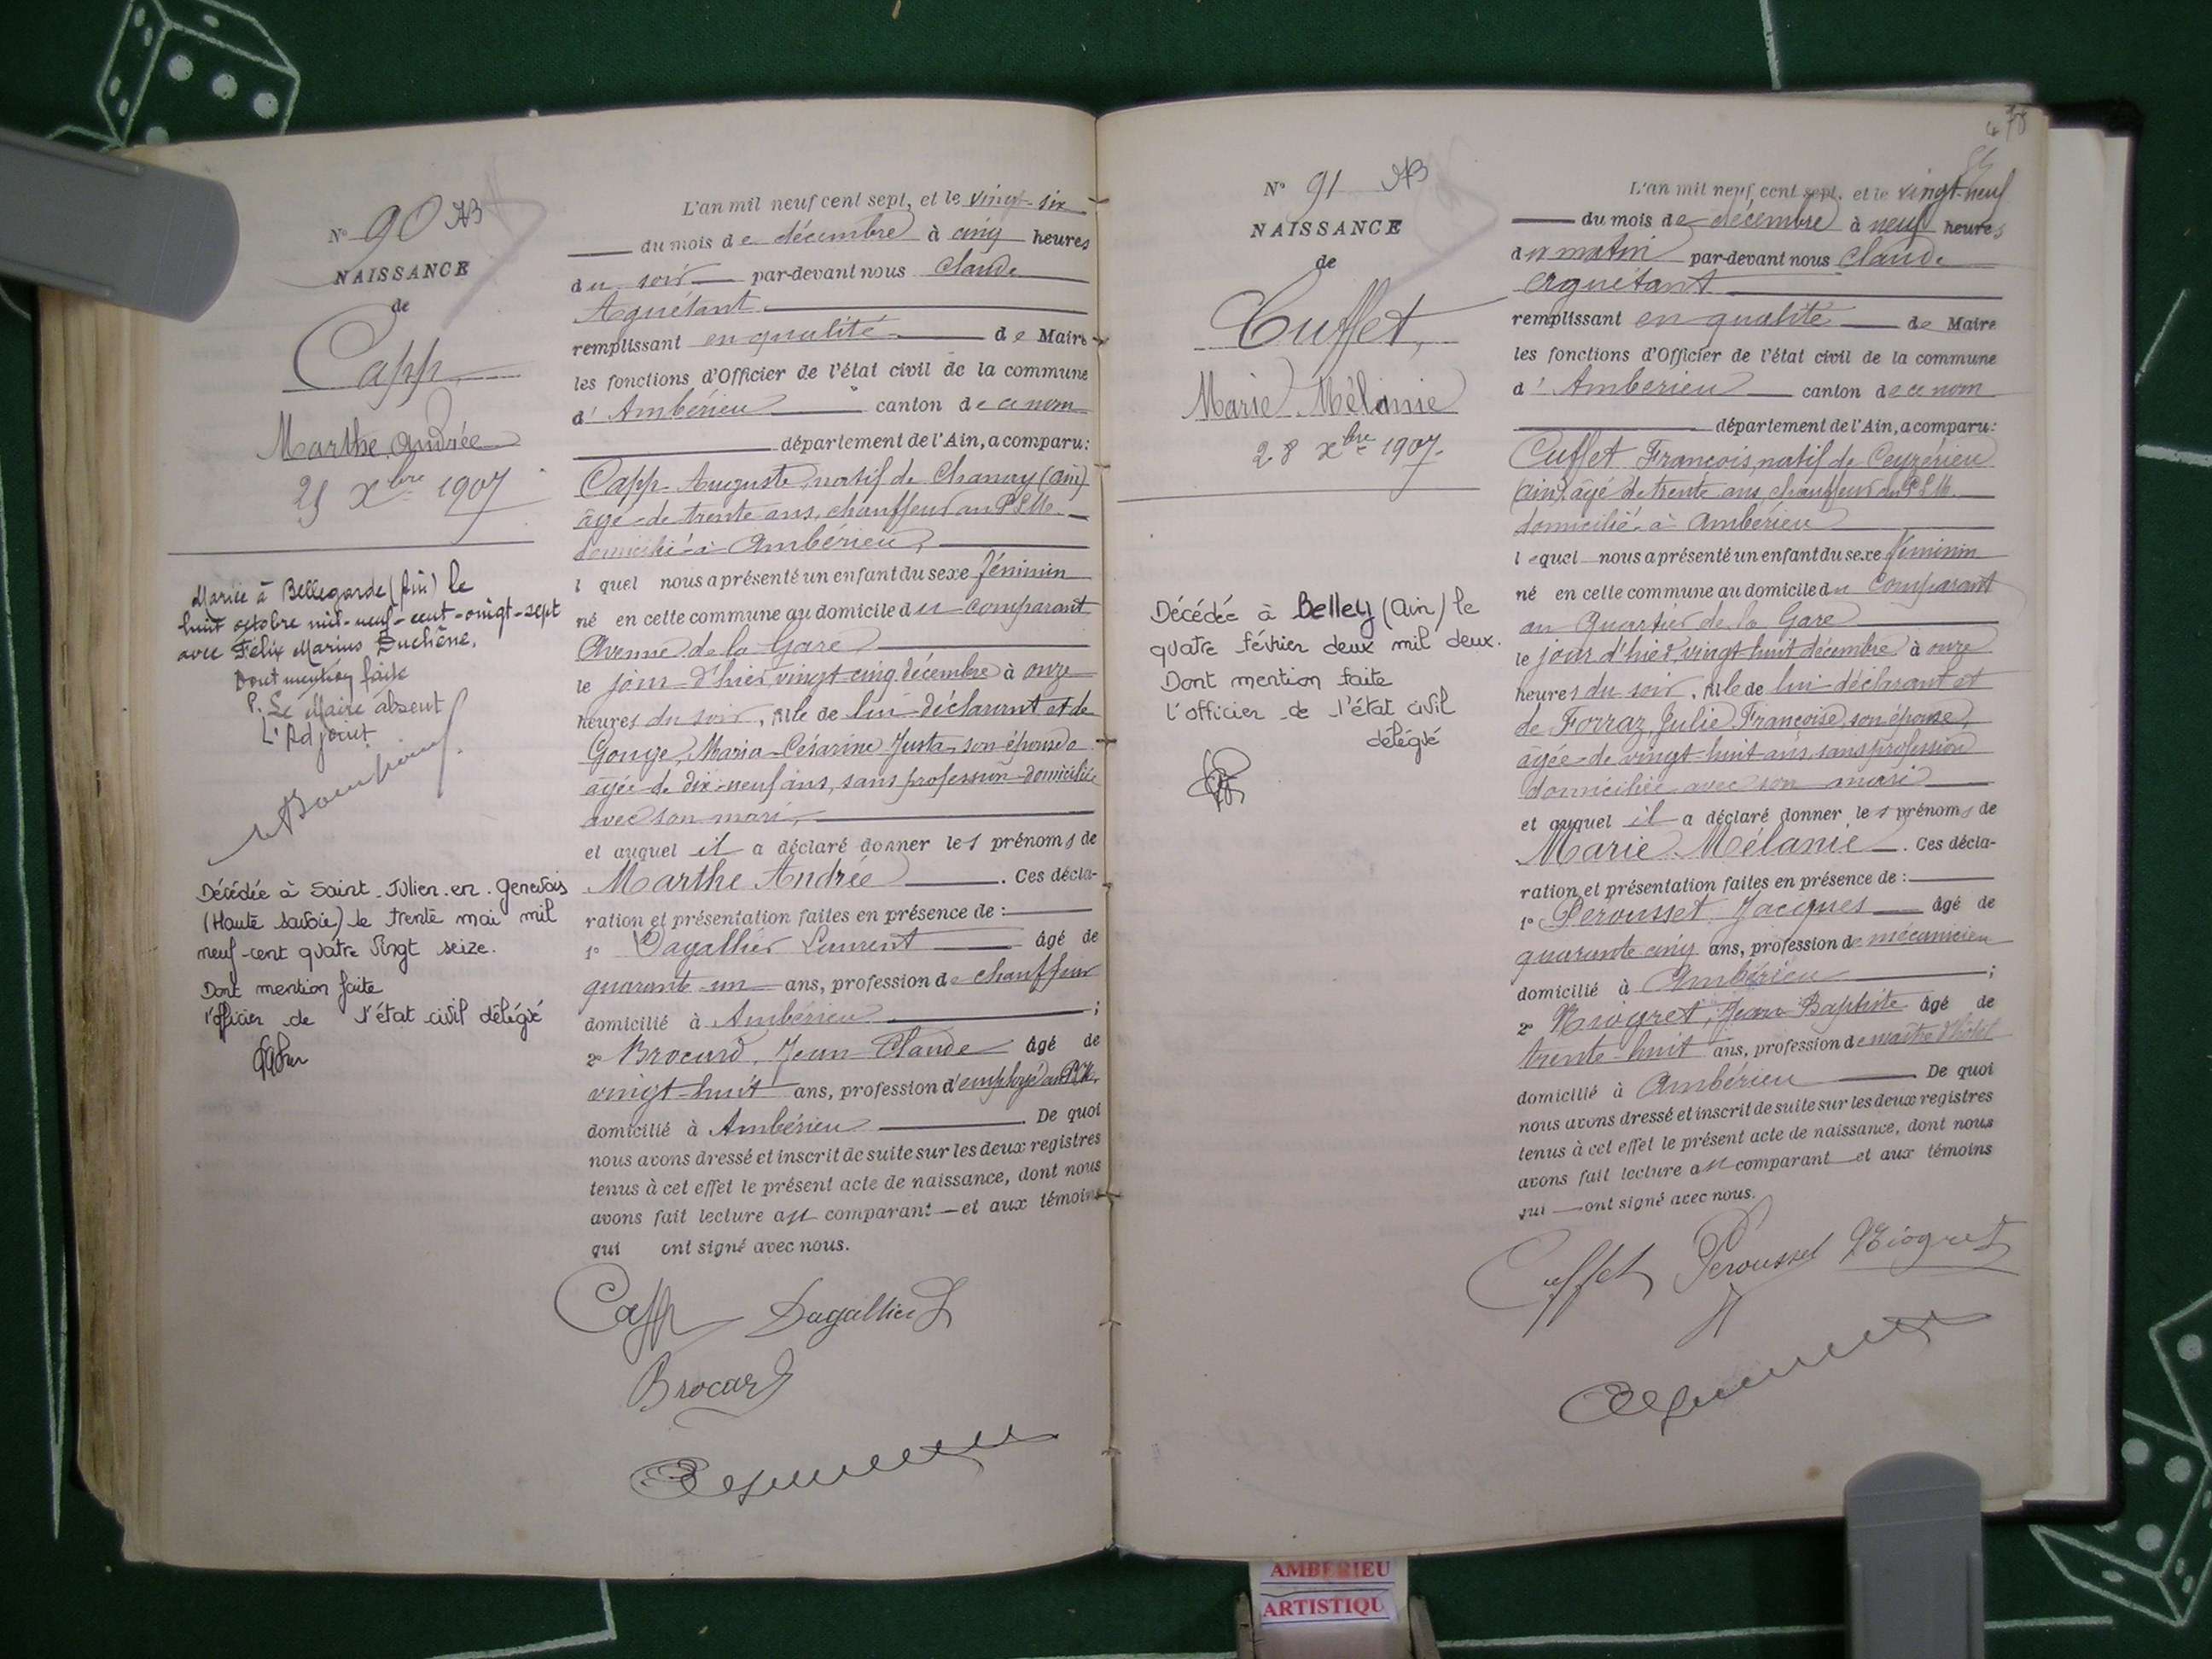 N° 90 AB
NAISSANCE
de
Capp
Marthe Andrée
25 Xbre 1907
Mariée à Bellegarde (Ain) le
huit octobre mil-neuf-cent-vingt-sept
avec Félix Marius Duchêne.
Dont mention faite
P. Le Maire absent
L'Adjoint
Décédée à Saint-Julien-en-Genevois
(Haute Savoie) le trente mai mil
neuf-cent quatre vingt seize.
Dont mention faite
l'officier de l'état civil délégué
L'an mil neuf cent sept, et le vingt-six
du mois de décembre à cinq heures
du soir par-devant nous Claude
Aguétant
remplissant en qualité de Maire
les fonctions d'Officier de l'état civil de la commune
d' Ambérieu canton de ce nom
département de l'Ain, a comparu:
Capp Auguste, natif de Chanay (Ain)
âgé de trente ans, chauffeur au PLM.
domicilié à Ambérieu,
l quel nous a présenté un enfant du sexe féminin
né en cette commune au domicile du comparant
Avenue de la Gare
le jour d'hier, vingt cinq décembre à onze
heures du soir, fille de lui déclarant et de
Gouge, Maria-Césarine Justa, son épouse
âgée de dix-neuf ans, sans profession domiciliée
avec son mari,
et auquel il a déclaré donner les prénoms de
Marthe Andrée. Ces décla-
ration et présentation faites en présence de :
1° Dagallier Laurent âgé de
quarante-un ans, profession de chauffeur
domicilié à Ambérieu ;
2° Brocard, Jean Claude âgé de
vingt-huit ans, profession d'employé au PLM.
domicilié à Ambérieu. De quoi
nous avons dressé et inscrit de suite sur les deux registres
tenus à cet effet le présent acte de naissance, dont nous
avons fait lecture au comparant et aux témoins
qui ont signé avec nous.
Capp Dagallier
Brocard
N° 91 AB
NAISSANCE
de
Cuffet,
Marie Mélanie
28 Xbre 1907.
Décédée à Belley (Ain) le
quatre février deux mil deux.
Dont mention faite
l'officier de l'état civil
délégué
478
L'an mil neuf cent sept, et le vingt-neuf
du mois de décembre à neuf heures
du matin par-devant nous Claude
Aguétant
remplissant en qualité de Maire
les fonctions d'Officier de l'état civil de la commune
d' Ambérieu canton de ce nom
département de l'Ain, a comparu:
Cuffet François, natif de Ceyzérieu
(Ain) âgé de trente ans, chauffeur au PLM.
domicilié à Ambérieu
lequel nous a présenté un enfant du sexe féminin
né en cette commune au domicile du comparant
au Quartier de la Gare
le jour d'hier, vingt huit décembre à onze
heures du soir, fille de lui déclarant et
de Forraz Julie Françoise, son épouse,
âgée de vingt-huit ans, sans profession
domiciliée avec son mari
et auquel il a déclaré donner les prénoms de
Marie Mélanie. Ces décla-
ration et présentation faites en présence de :
1° Perousset Jacques âgé de
quarante cinq ans, profession de mécanicien
domicilié à Ambérieu ;
2° Niogret, Jean Baptiste âgé de
trente-huit ans, profession de maître d'hôtel
domicilié à Ambérieu. De quoi
nous avons dressé et inscrit de suite sur les deux registres
tenus à cet effet le présent acte de naissance, dont nous
avons fait lecture au comparant et aux témoins
qui ont signé avec nous.
Cuffet Perousset Niogret
AMBERIEU
ARTISTIQU